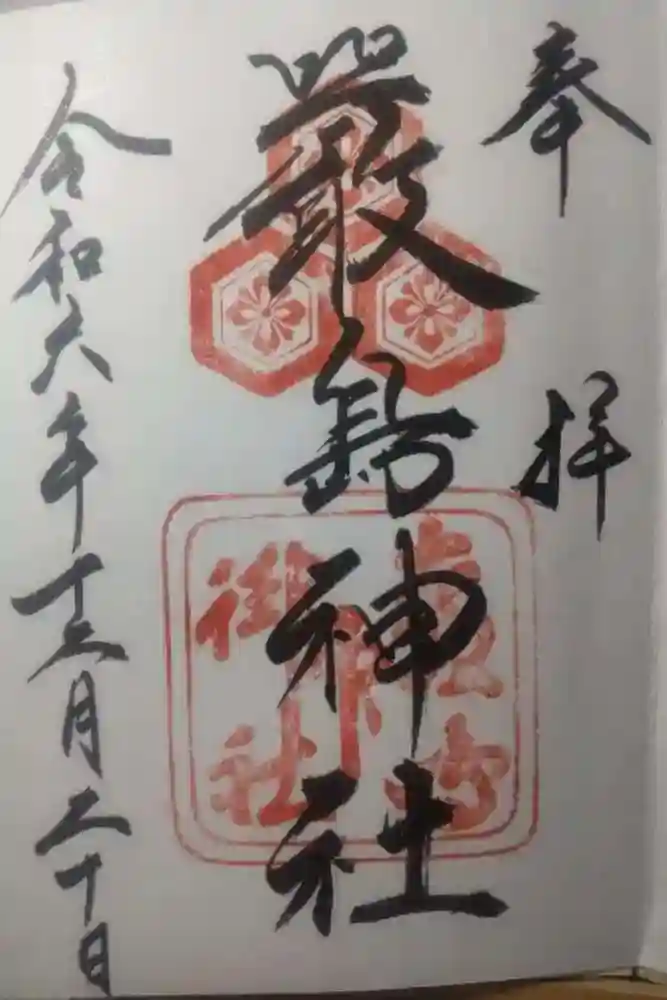 奉拝
嚴島神社
令和六年十二月二十日